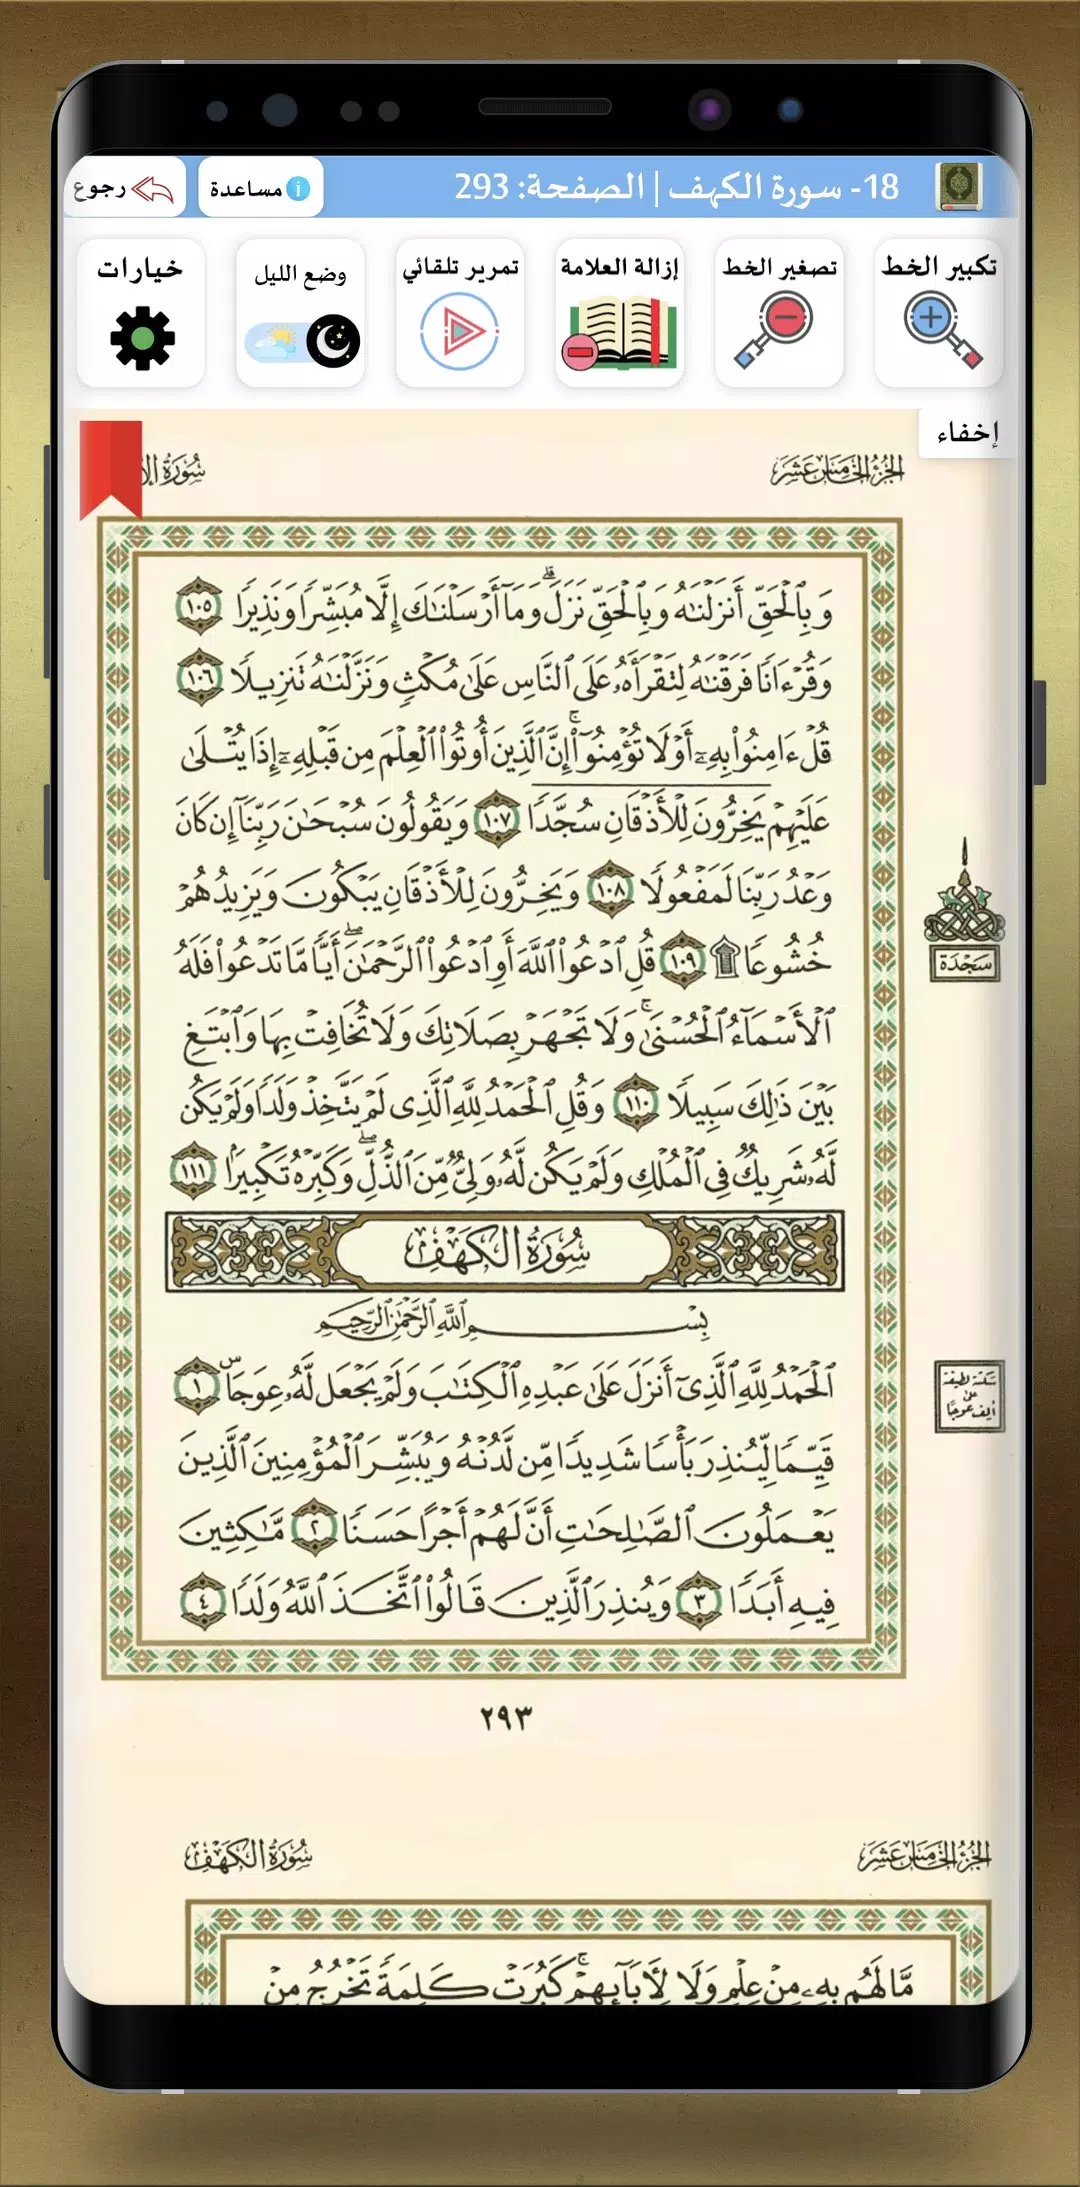 18- سورة الكهف | الصفحة: 293
مساعدة
رجوع
تكبير الخط
تصغير الخط
إزالة العلامة
تمرير تلقائي
وضع الليل
خيارات
إخفاء
الجزء الخامس عشر
سورة الإ
وَبِٱلْحَقِّ أَنزَلْنَٰهُ وَبِٱلْحَقِّ نَزَلَ ۗ وَمَآ أَرْسَلْنَٰكَ إِلَّا مُبَشِّرًا وَنَذِيرًا ١٠٥
وَقُرْءَانًا فَرَقْنَٰهُ لِتَقْرَأَهُۥ عَلَى ٱلنَّاسِ عَلَىٰ مُكْثٍ وَنَزَّلْنَٰهُ تَنزِيلًا ١٠٦
قُلْ ءَامِنُوا۟ بِهِۦٓ أَوْ لَا تُؤْمِنُوٓا۟ ۚ إِنَّ ٱلَّذِينَ أُوتُوا۟ ٱلْعِلْمَ مِن قَبْلِهِۦٓ إِذَا يُتْلَىٰ
عَلَيْهِمْ يَخِرُّونَ لِلْأَذْقَانِ سُجَّدًا ١٠٧ وَيَقُولُونَ سُبْحَٰنَ رَبِّنَآ إِن كَانَ
وَعْدُ رَبِّنَا لَمَفْعُولًا ١٠٨ وَيَخِرُّونَ لِلْأَذْقَانِ يَبْكُونَ وَيَزِيدُهُمْ
خُشُوعًا ۩ ١٠٩ قُلِ ٱدْعُوا۟ ٱللَّهَ أَوِ ٱدْعُوا۟ ٱلرَّحْمَٰنَ ۖ أَيًّا مَّا تَدْعُوا۟ فَلَهُ
سَجْدَة
ٱلْأَسْمَآءُ ٱلْحُسْنَىٰ ۚ وَلَا تَجْهَرْ بِصَلَاتِكَ وَلَا تُخَافِتْ بِهَا وَٱبْتَغِ
بَيْنَ ذَٰلِكَ سَبِيلًا ١١٠ وَقُلِ ٱلْحَمْدُ لِلَّهِ ٱلَّذِى لَمْ يَتَّخِذْ وَلَدًا وَلَمْ يَكُن
لَّهُۥ شَرِيكٌ فِى ٱلْمُلْكِ وَلَمْ يَكُن لَّهُۥ وَلِىٌّ مِّنَ ٱلذُّلِّ ۖ وَكَبِّرْهُ تَكْبِيرًۢا ١١١
سُورَةُ الكَهْفِ
بِسْمِ ٱللَّهِ ٱلرَّحْمَٰنِ ٱلرَّحِيمِ
ٱلْحَمْدُ لِلَّهِ ٱلَّذِىٓ أَنزَلَ عَلَىٰ عَبْدِهِ ٱلْكِتَٰبَ وَلَمْ يَجْعَل لَّهُۥ عِوَجَا ۜ ١
سكتة لطيفة
على
ألف عوجا
قَيِّمًا لِّيُنذِرَ بَأْسًا شَدِيدًا مِّن لَّدُنْهُ وَيُبَشِّرَ ٱلْمُؤْمِنِينَ ٱلَّذِينَ
يَعْمَلُونَ ٱلصَّٰلِحَٰتِ أَنَّ لَهُمْ أَجْرًا حَسَنًا ٢ مَّٰكِثِينَ
فِيهِ أَبَدًا ٣ وَيُنذِرَ ٱلَّذِينَ قَالُوا۟ ٱتَّخَذَ ٱللَّهُ وَلَدًا ٤
٢٩٣
الجزء الخامس عشر
سورة الكهف
مَّا لَهُم بِهِۦ مِنْ عِلْمٍ وَلَا لِـَٔابَآئِهِمْ ۚ كَبُرَتْ كَلِمَةً تَخْرُجُ مِنْ